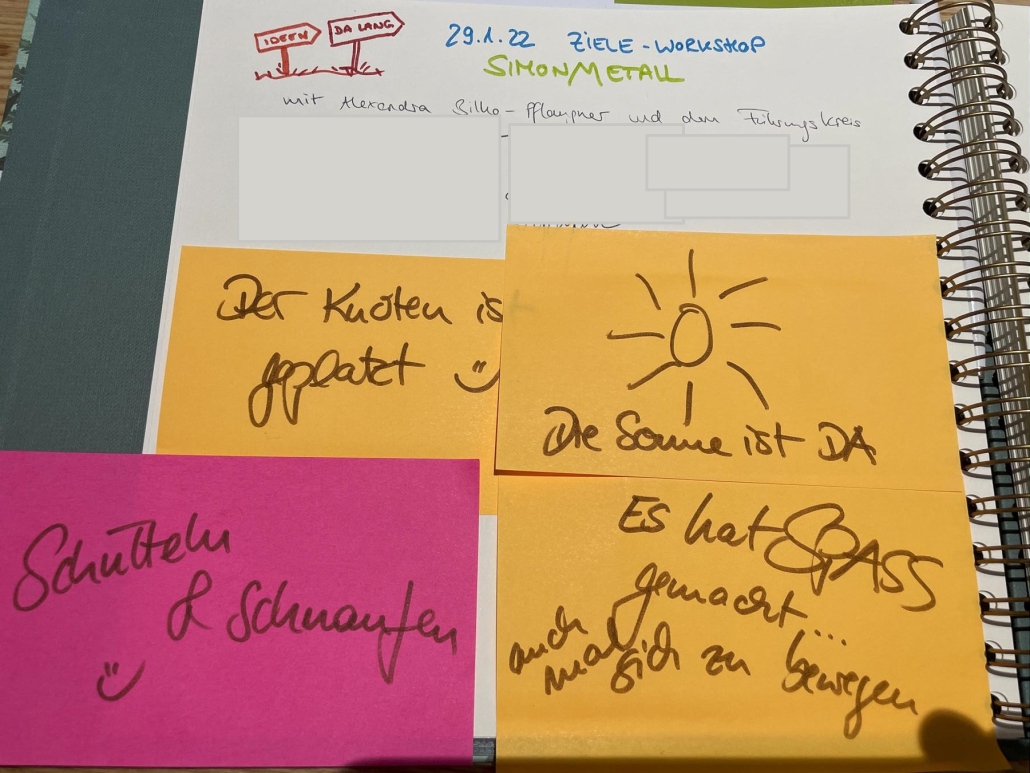 IDEEN
DA LANG
29.1.22 ZIELE-WORKSHOP
SIMONMETALL
mit Alexandra und dem Führungskreis
Der Knoten ist
geplatzt
Die Sonne ist DA
Schütteln
& Schnaufen
Es hat SPASS
gemacht...
auch mal sich zu bewegen